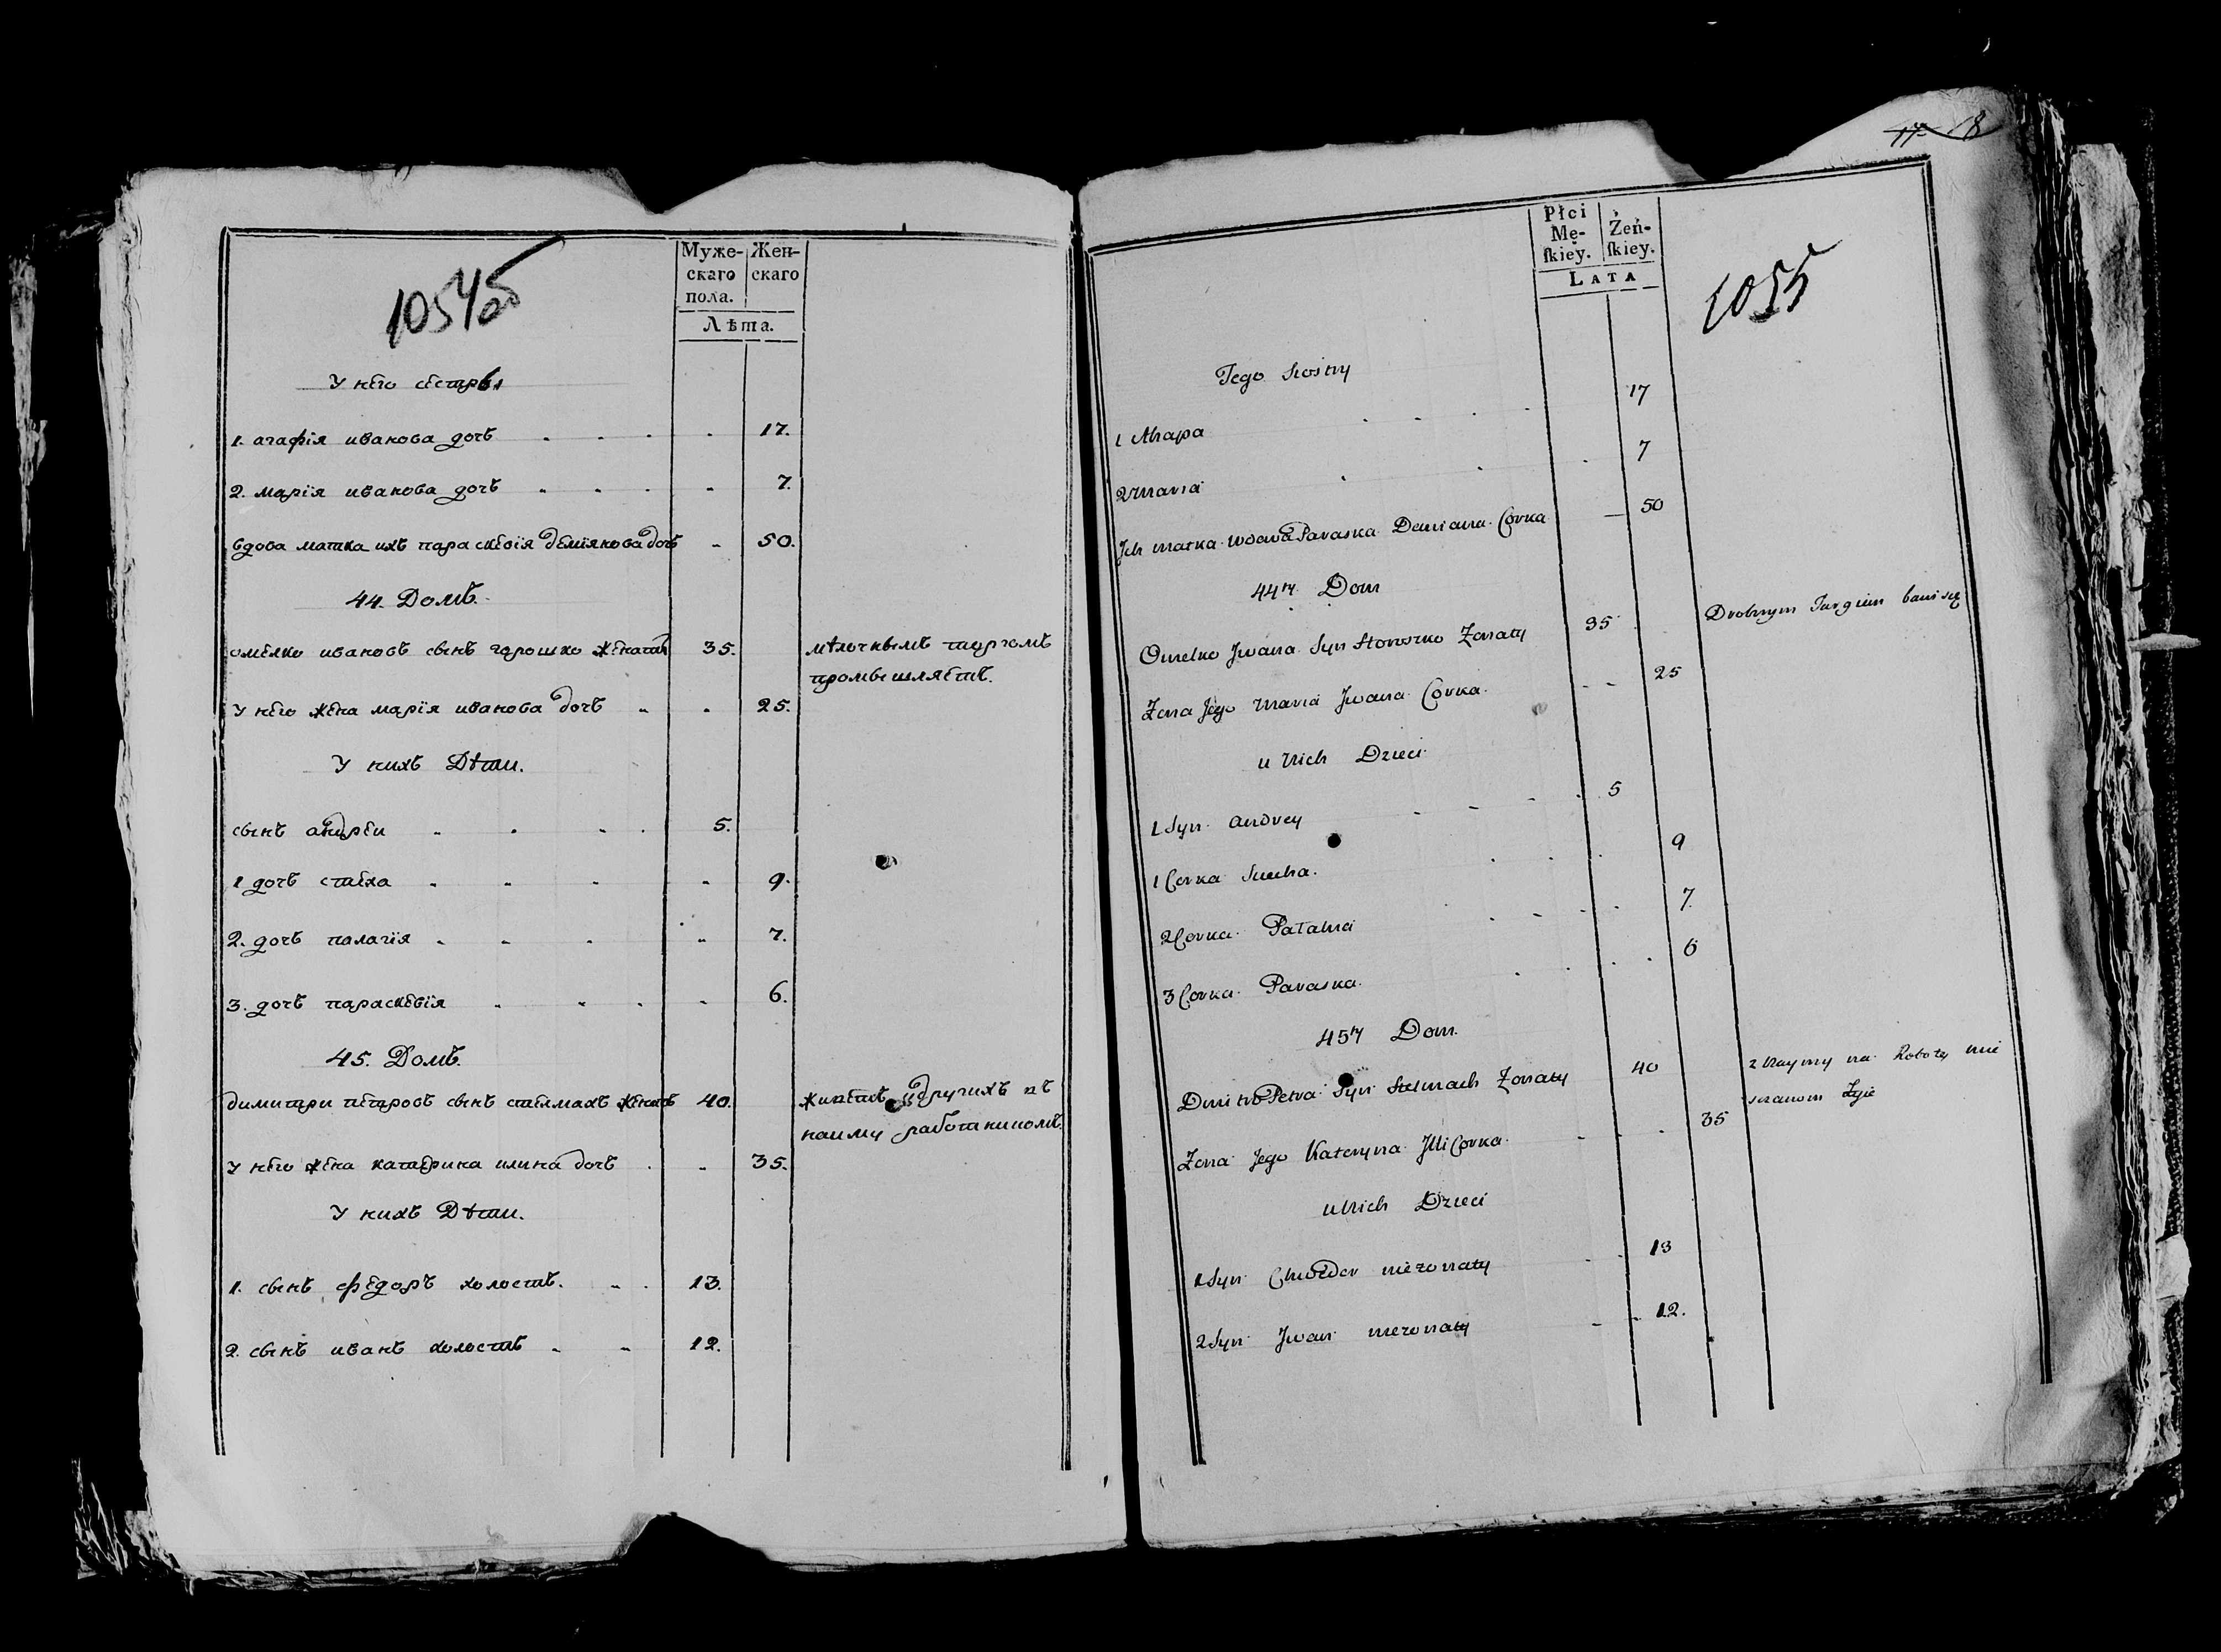 1054об
Муже-
скаго
пола.
Жен-
скаго
Лѣта.
У него сестры
1. агафія иванова дочь 17.
2. марія иванова дочь 7.
вдова матка ихъ параскевія деміянова дочь 50.
44. Домъ.
омелко ивановъ сынъ горошко женатъ 35. мѣлочнымъ торгомъ
промышляетъ.
У него жена марія иванова дочь 25.
У нихъ Дѣти.
сынъ андреи 5.
1 дочь стеха 9.
2. дочь палагія 7.
3. дочь параскевія 6.
45. Домъ.
димитри петровъ сынъ стелмахъ женатъ 40. живетъ у другихъ въ
найму работникомъ.
У него жена катерина илина дочь 35.
У нихъ Дѣти.
1. сынъ федоръ холостъ. 13.
2. сынъ иванъ холостъ 12.
17 18
Płci
Mę-
ſkiey.
Żeń-
ſkiey.
LATA
1055
Jego Siostry
1 Ahapa 17
2 Maria 7
Jch matka wdowa Paraska Demiana Corka 50
44ty Dom
Omelko Jwana Syn Horoszko Zonaty 35 Drobnym Targiem bawi się
Zona Jego Maria Jwana Corka 25
u Nich Dzieci
1 Syn Andrey 5
1 Corka Stecha. 9
2 Corka Pałahia 7.
3 Corka Paraska. 6
45ty Dom.
Dmitro Petra Syn Stelmach Zonaty 40 z Naymy na Roboty
Zyie
Zona Jego Kateryna Jlli Corka. 35
u Nich Dzieci
1 Syn Chwedor niezonaty 13
2 Syn Jwan niezonaty 12.